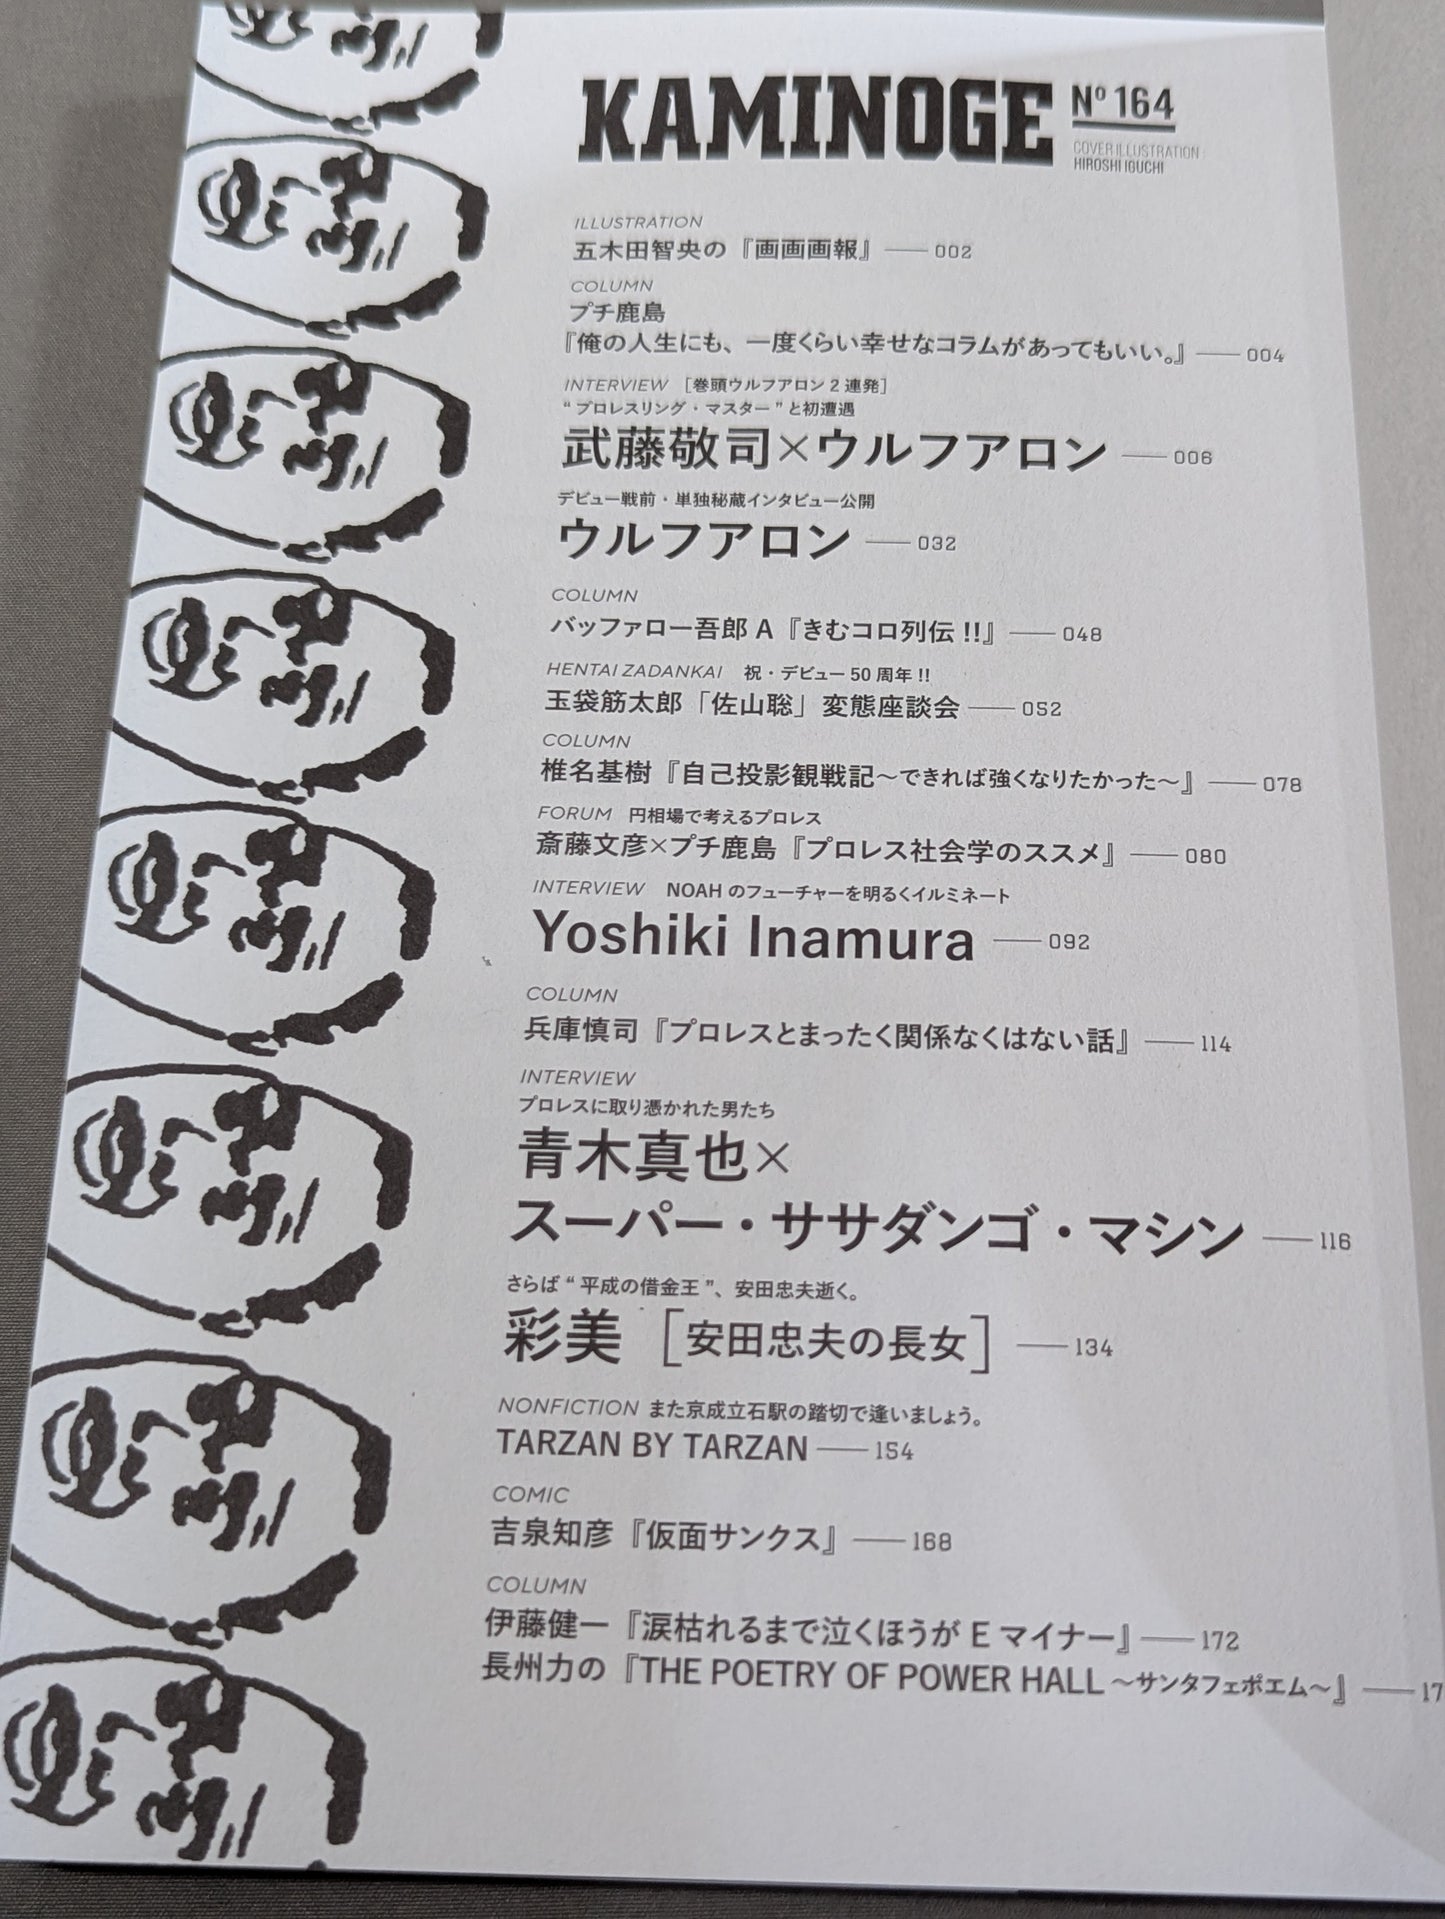 KAMINOGE Nº 164
COVER ILLUSTRATION
HIROSHI IGUCHI
ILLUSTRATION
五木田智央の『画画画報』 —— 002
COLUMN
プチ鹿島
『俺の人生にも、一度くらい幸せなコラムがあってもいい。』 —— 004
INTERVIEW [巻頭ウルフアロン2連発]
“プロレスリング・マスター”と初遭遇
武藤敬司×ウルフアロン —— 006
デビュー戦前・単独秘蔵インタビュー公開
ウルフアロン —— 032
COLUMN
バッファロー吾郎A『きむコロ列伝!!』 —— 048
HENTAI ZADANKAI 祝・デビュー50周年!!
玉袋筋太郎「佐山聡」変態座談会 —— 052
COLUMN
椎名基樹『自己投影観戦記〜できれば強くなりたかった〜』 —— 078
FORUM 円相場で考えるプロレス
斎藤文彦×プチ鹿島『プロレス社会学のススメ』 —— 080
INTERVIEW NOAHのフューチャーを明るくイルミネート
Yoshiki Inamura —— 092
COLUMN
兵庫慎司『プロレスとまったく関係なくはない話』 —— 114
INTERVIEW
プロレスに取り憑かれた男たち
青木真也×
スーパー・ササダンゴ・マシン —— 116
さらば“平成の借金王”、安田忠夫逝く。
彩美 [安田忠夫の長女] —— 134
NONFICTION また京成立石駅の踏切で逢いましょう。
TARZAN BY TARZAN —— 154
COMIC
吉泉知彦『仮面サンクス』 —— 168
COLUMN
伊藤健一『涙枯れるまで泣くほうがEマイナー』 —— 172
長州力の『THE POETRY OF POWER HALL〜サンタフェポエム〜』 —— 17